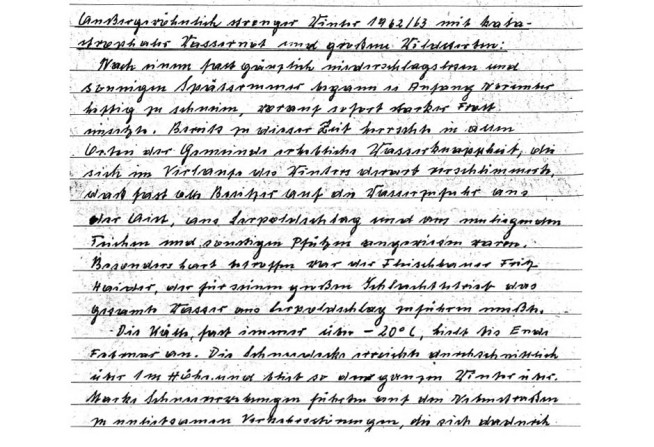 Außergewöhnlich strenger Winter 1962/63 mit kata-
strophaler Wassernot und großem Wildsterben:
Nach einem fast gänzlich niederschlagslosen und
sonnigen Spätsommer begann es Anfang November
heftig zu schneien, worauf sofort starker Frost
einsetzte. Bereits zu dieser Zeit herrschte in allen
Orten der Gemeinde erhebliche Wasserknappheit, die
sich im Verlaufe des Winters derart verschlimmerte,
daß fast alle Besitzer auf die Wasserzufuhr aus
der Aist, aus Leopoldschlag und den umliegenden
Teichen und sonstigen Pfützen angewiesen waren.
Besonders hart betroffen war der Fleischhauer Fritz
Haider, der für seinen großen Schlachtbetrieb das
gesamte Wasser aus Leopoldschlag zuführen mußte.
Die Kälte, fast immer über -20°C, hielt bis Ende
Februar an. Die Schneedecke erreichte durchschnittlich
über 1m Höhe und blieb so den ganzen Winter über.
Starke Schneeverwehungen führten auf den Nebenstraßen
zu unliebsamen Verkehrsstörungen, die sich dadurch